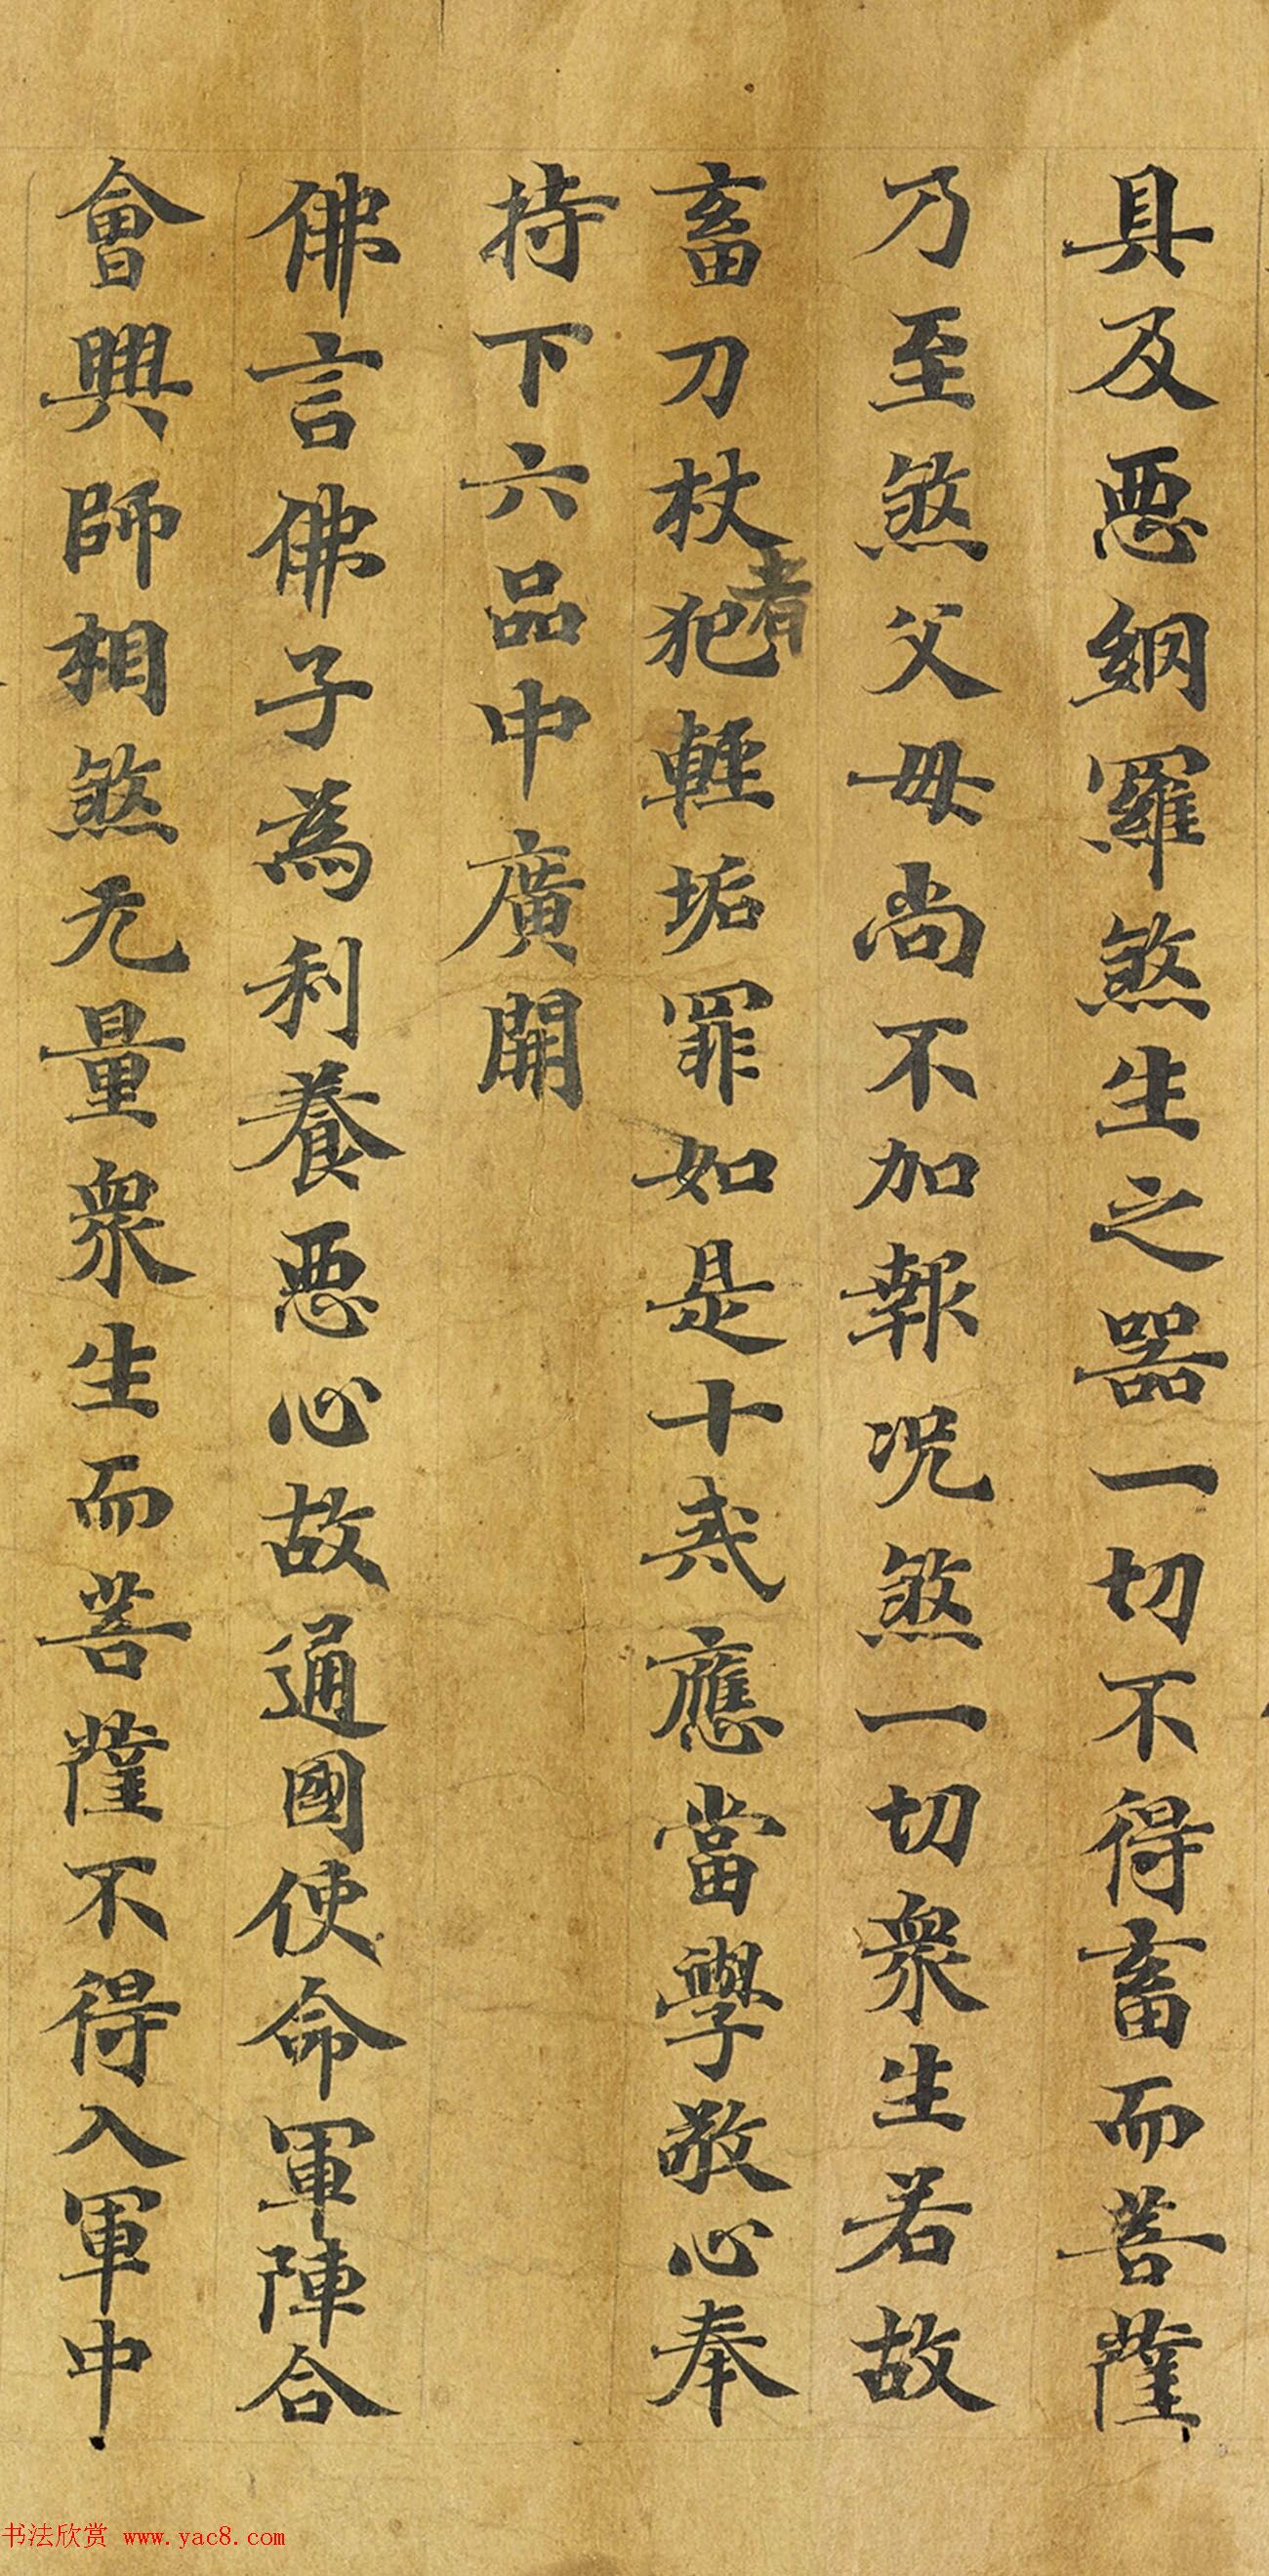 具及惡網羅煞生之器一切不得畜而菩薩
乃至煞父母尚不加報况煞一切衆生若故
畜刀杖者犯輕垢罪如是十戒應當學敬心奉
持下六品中廣開
佛言佛子為利養惡心故通國使命軍陣合
會興師相煞无量衆生而菩薩不得入軍中
书法欣赏 www.yac8.com